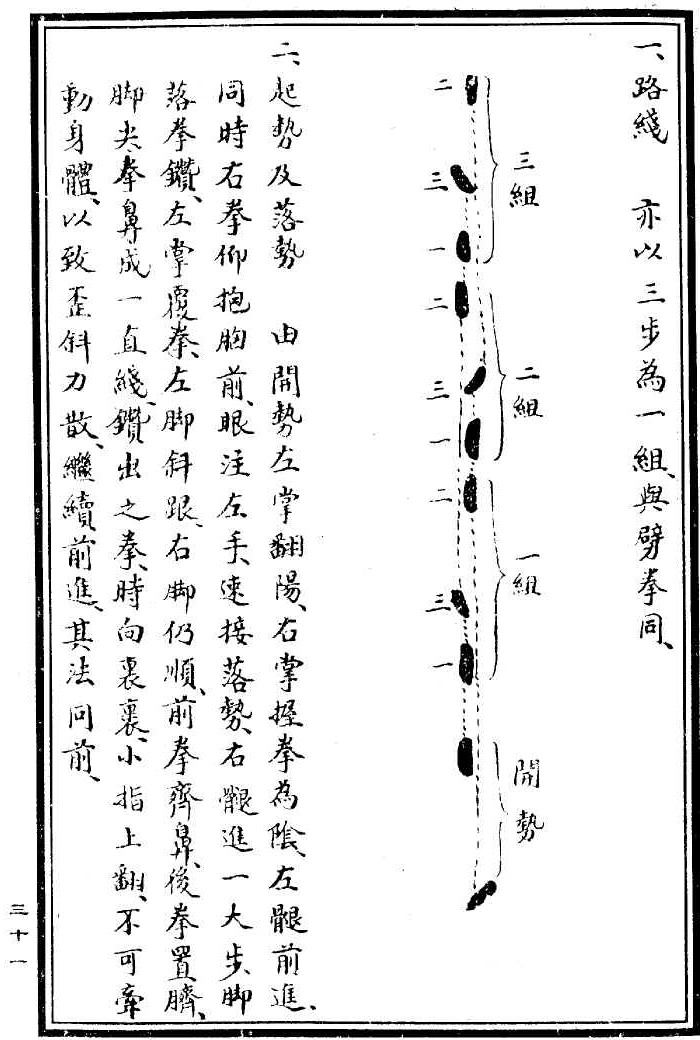 一、路綫　亦以三步為一組、與劈拳同、
三組
二組
一組
開勢
二
三
一
二
三
一
二
三
一
二、起勢及落勢　由開勢左掌翻陽、右掌握拳為陰、左腿前進、
同時右拳仰抱胸前、眼注左手、速接落勢、右腿進一大步、脚
落拳鑽、左掌覆拳、左脚斜跟、右脚仍順、前拳齊鼻、後拳置臍、
脚尖拳鼻成一直綫、鑽出之拳、時向裏裹、小指上翻、不可牽
動身體、以致歪斜力散、繼續前進、其法同前、
三十一